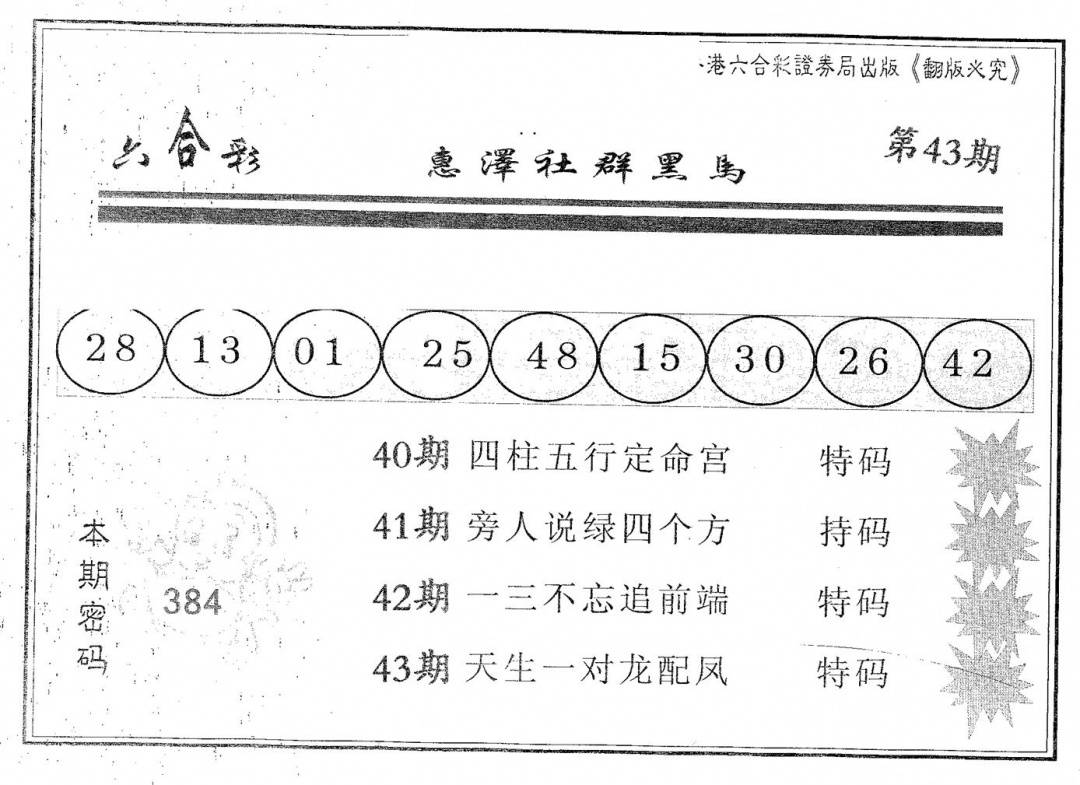 港六合彩證券局出版《翻版必究》
六合彩 惠澤社群黑馬 第43期
28 13 01 25 48 15 30 26 42
40期 四柱五行定命宫 特码
41期 旁人说绿四个方 持码
42期 一三不忘追前端 特码
43期 天生一对龙配凤 特码
本期密码
384